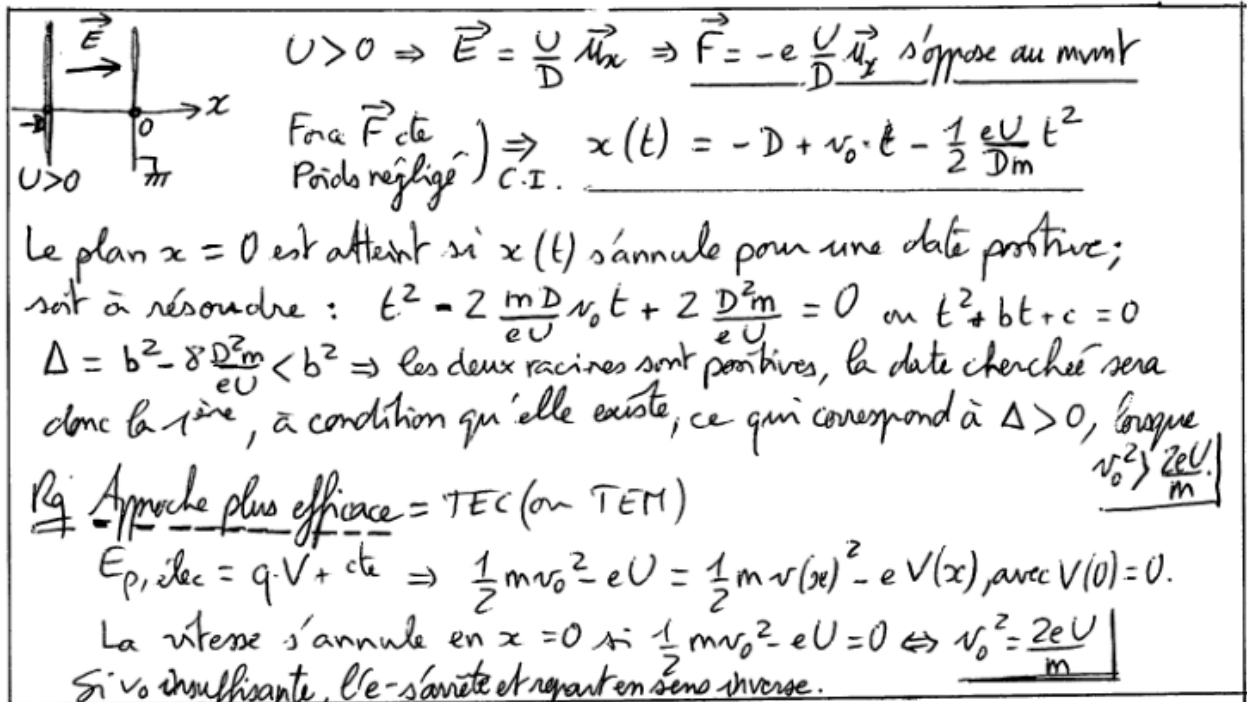 E⃗
-D O x
U>0
U>0 ⇒ E⃗ = U/D u⃗x ⇒ F⃗ = -e U/D u⃗x s'oppose au mvmt
Force F⃗ cte
Poids négligé ) ⇒ C.I. x(t) = -D + v₀·t - 1/2 eU/Dm t²
Le plan x = 0 est atteint si x(t) s'annule pour une date positive;
soit à résoudre : t² - 2 mD/eU v₀t + 2 D²m/eU = 0 ou t²+bt+c = 0
Δ = b² - 8 D²m/eU < b² ⇒ les deux racines sont positives, la date cherchée sera
donc la 1ère, à condition qu'elle existe, ce qui correspond à Δ>0, lorsque
v₀² > 2eU/m
Rq Approche plus efficace = TEC (ou TEM)
Ep,élec = q·V + cte ⇒ 1/2 mv₀² - eU = 1/2 m v(x)² - e V(x), avec V(0)=0.
La vitesse s'annule en x=0 si 1/2 mv₀² - eU = 0 ⇔ v₀² = 2eU/m
Si v₀ insuffisante, l'e- s'arrête et repart en sens inverse.